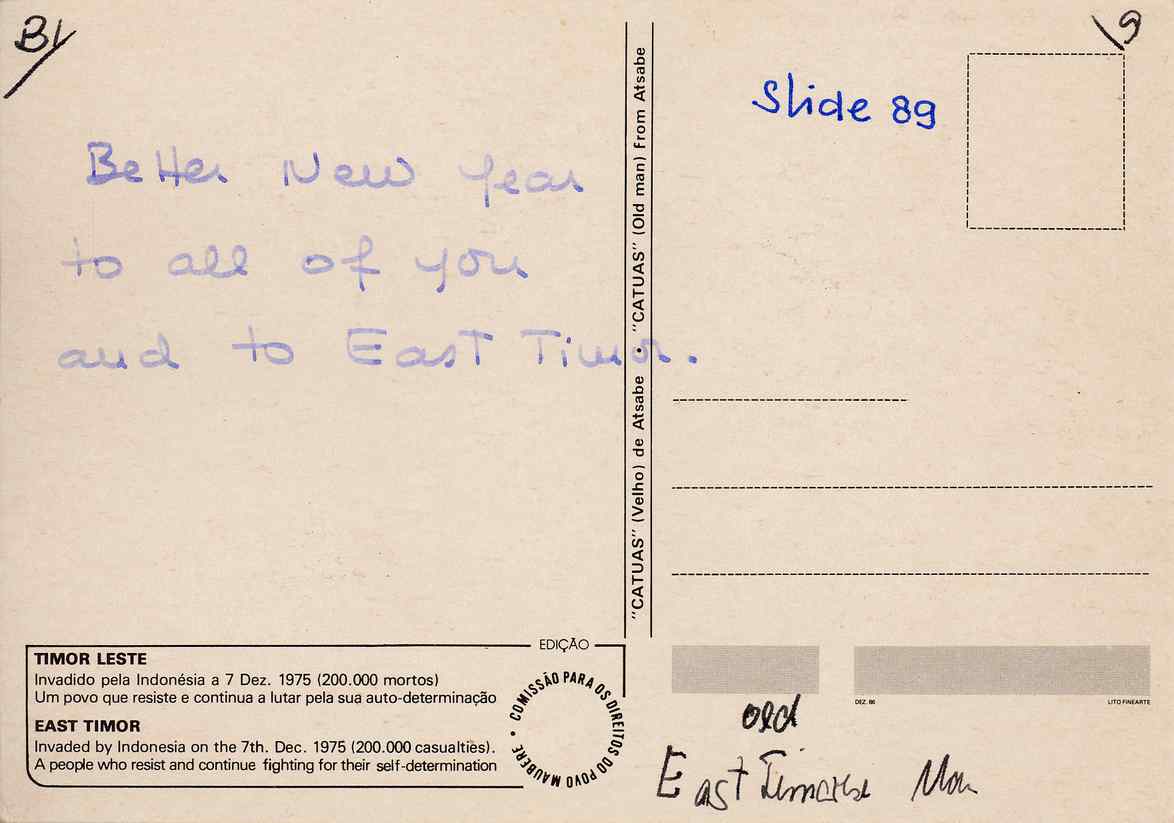 B1/
Better New Year
to all of you
and to East Timor.
"CATUAS" (Velho) de Atsabe • "CATUAS" (Old man) From Atsabe
9
Slide 89
EDIÇÃO
TIMOR LESTE
Invadido pela Indonésia a 7 Dez. 1975 (200.000 mortos)
Um povo que resiste e continua a lutar pela sua auto-determinação
EAST TIMOR
Invaded by Indonesia on the 7th. Dec. 1975 (200.000 casualties).
A people who resist and continue fighting for their self-determination
• COMISSÃO PARA OS DIREITOS DO POVO MAUBERE
DEZ. 86
LITO FINEARTE
old
East Timorese Man